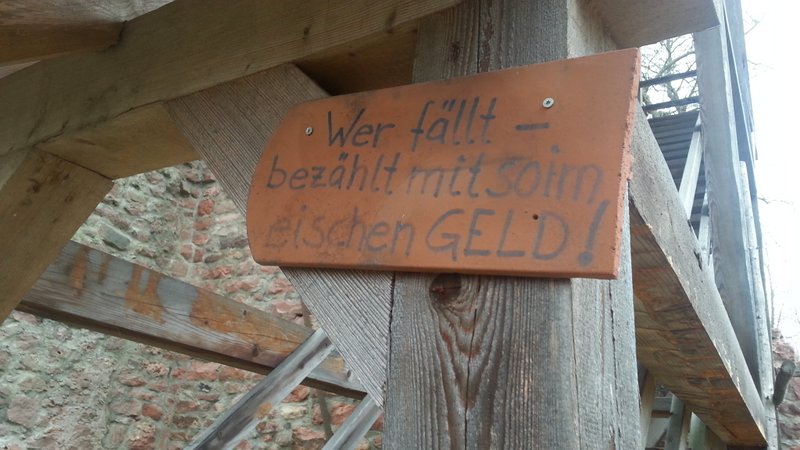 Wer fällt -
bezählt mit soim
eischen GELD!